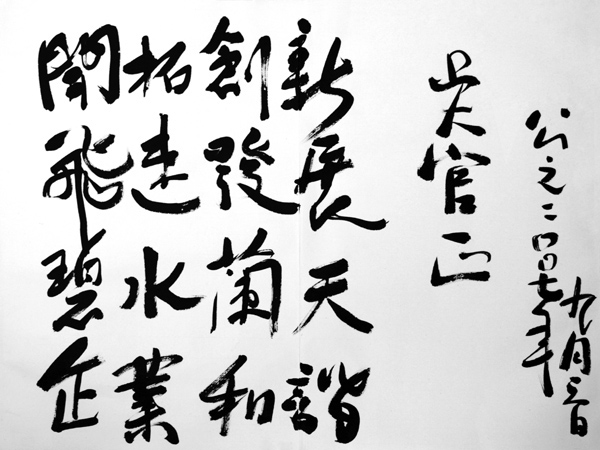 開拓創新
飛速發展
碧水蘭天
企業和諧
吴官正
公元二〇〇七年
九月三日